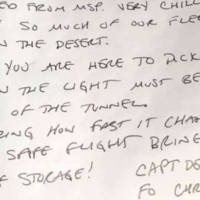 FROM MSP. VERY CHILL
SO MUCH OF OUR FLEE
THE DESERT.
YOU ARE HERE TO PICK
THE LIGHT MUST BE
OF THE TUNNEL
HOW FAST IT CHA
SAFE FLIGHT BRINGI
STORAGE! CAPT DE
FO CHR